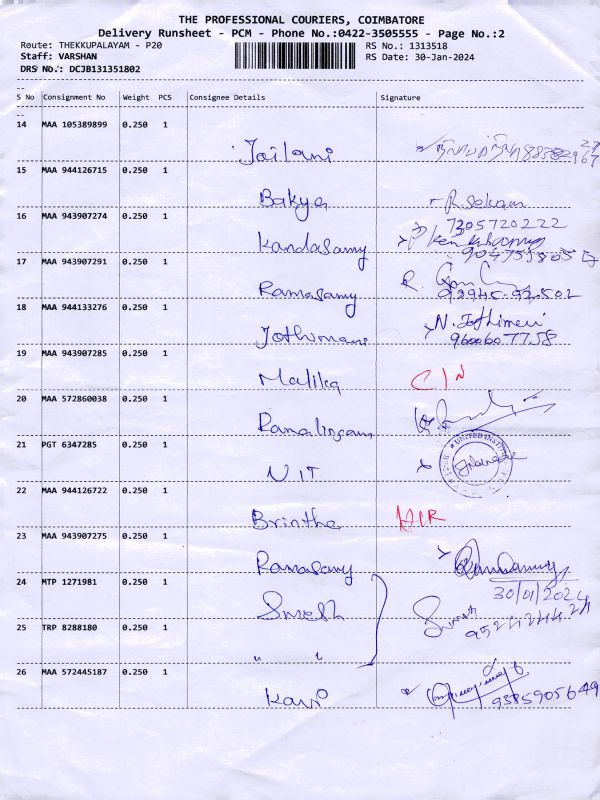 THE PROFESSIONAL COURIERS, COIMBATORE
Delivery Runsheet - PCM - Phone No.:0422-3505555 - Page No.:2
Route: THEKKUPALAYAM - P20 RS No.: 1313518
Staff: VARSHAN RS Date: 30-Jan-2024
DRS No.: DCJB131351802
S No Consignment No Weight PCS Consignee Details Signature
14 MAA 105389899 0.250 1
Jailani
15 MAA 944126715 0.250 1
Bakya R. Sekar
16 MAA 943907274 0.250 1 7305720222
Kandasamy
17 MAA 943907291 0.250 1
Ramasamy R.
18 MAA 944133276 0.250 1
Jothimani N. Jothimani
9600607758
19 MAA 943907285 0.250 1
Malika C/N
20 MAA 572860038 0.250 1
Ramalingam
21 PGT 6347285 1 0.250 1
UNITED
UIT
22 MAA 944126722 0.250 1
Brintha
23 MAA 943907275 0.250 1
Ramasamy
24 MTP 1271981 0.250 1 30/01/2024
Suresh
25 TRP 8288180 0.250 1
" "
26 MAA 572445187 0.250 1
Kavi 9385905649